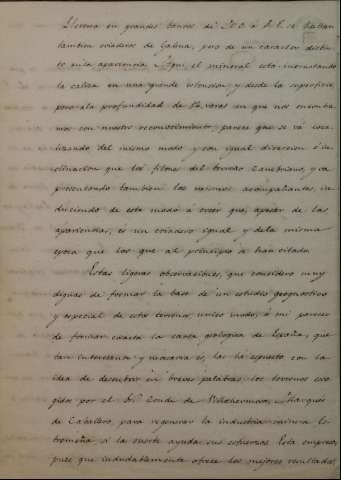 Llerena en grandes bancos de S.O. á N.E. se hallan
tambien criaderos de Galena, pero de un caracter distin-
to en la apariencia. Aqui, el mineral esta incrustando
la caliza en una grande estension y desde la superficie
pero a la profundidad de varas en que nos encontra-
mos con nuestro reconocimiento, parece que se vá loca-
lizando del mismo modo y con igual direccion é in-
clinacion que los filones del terreno Cambriano, y va
presentando tambien los mismos acompañantes, in-
duciendo de este modo á creer que, apesar de las
apariencias, es un criadero igual y de la misma
epoca que los que al principio se han citado.
Estas ligeras observaciones, que considero muy
dignas de formar la base de un estudio geognostico
y especial de estos terrenos, unico modo, á mi parecer
de formar exacta la carta geologica de España, que
tan interesante y necesaria es, las he espuesto con la
idea de describir en breves palabras los terrenos esco-
gidos por el Sr. Conde de Villahermosa, Marqués
de Caballero, para regenerar la industria minera Es-
tremeña, si la suerte ayuda sus esfuerzos. Esta empresa,
pues que indudablemente ofrece los mejores resultados,